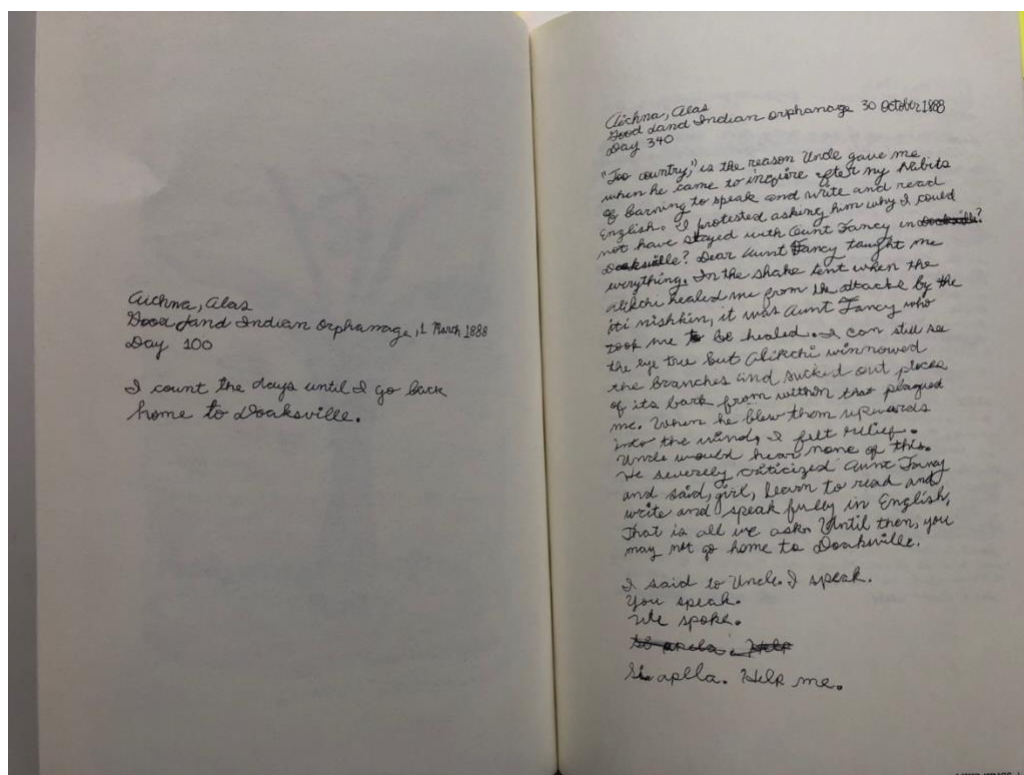 Aichna, Alas
Good Land Indian Orphanage, 1 March 1888
Day 100
I count the days until I go back
home to Doaksville.
Aichna, Alas
Good Land Indian Orphanage 30 October 1888
Day 340
"Too country," is the reason Uncle gave me
when he came to inquire after my habits
of learning to speak and write and read
English. I protested asking him why I could
not have stayed with Aunt Fancy in Doaksville?
Doaksville? Dear Aunt Fancy taught me
everything. In the shake tent when the
alikchi healed me from the attacks by the
iti nishkin, it was Aunt Fancy who
took me to be healed. I can still see
the eye tree but Alikchi winnowed
the branches and sucked out pieces
of its bark from within that plagued
me. When he blew them upwards
into the wind, I felt relief.
Uncle would hear none of this.
He severely criticized Aunt Fancy
and said, girl, learn to read and
write and speak fully in English,
That is all we ask. Until then, you
may not go home to Doaksville.
I said to Uncle. I speak.
You speak.
We spoke.
Help
Si apella. Help me.